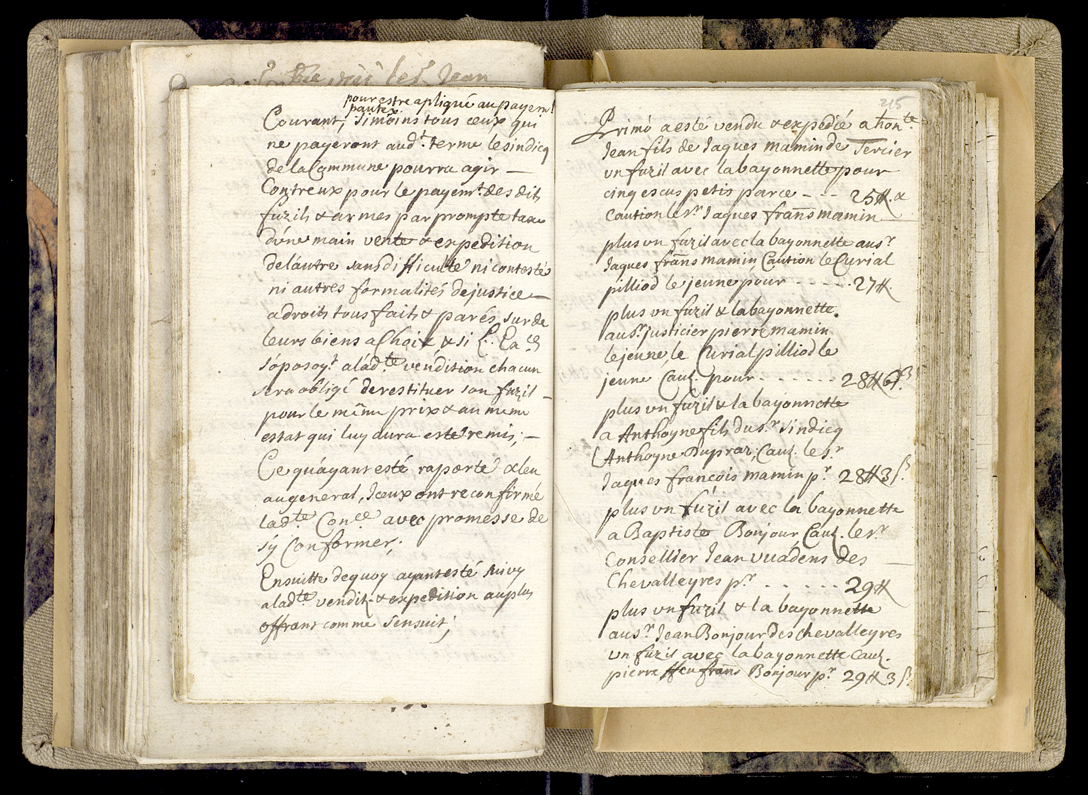 pour estre apliqué au payem.t
Courant, Si moins tous ceux qui
ne payeront aud.t terme le sindicq
de la Commune pourra agir —
Contreux pour le payem.t des dits
fuzils & armes par prompte taxe
d'une main vente & expedition
de lautre sans difficulté ni contesté
ni autres formalités de justice —
a droits tous faits & parés, sur de
leurs biens a Choix & si
soposoy.t a lad.te vendition chacun
sera obligé de restituer son fuzil —
pour le même prix & au meme
estat qui luy aura esté remis; —
Ce quayant esté rapporté & leu
au general, Iceux ont reconfirmé
lad.te Con.ce avec promesse de
sy Conformer;
Ensuitte dequoy ayant esté suivy
a lad.te vendit. & expedition au plus
offrant comme Sensuit;
215
Primo a esté vendu & expedié a hon.te
Jean fils de Jaques mamin de Tercier
vn fuzil avec la bayonnette pour
cinq escus petis parce - - - 25 ft.
caution le s.r Jaques frans mamin
plus vn fuzil avec la bayonnette au s.r
Jaques frans mamin Caution le Curial
pilliod le jeune pour - - - - 27 ft
plus vn fuzil & la bayonnette
au s.r justicier pierre mamin
le jeune le Curial pilliod le
jeune Caut. pour - - - - - - 28 ft 6 s.
plus vn fuzil & la bayonnette
a Anthoyne fils du s.r sindicq
Anthoyne Dupraz, Caut. le s.r
Jaques françois mamin p.r 28 ft 3 s.
plus vn fuzil avec la bayonnette
a Baptiste Bonjour Caut. le s.r
Consellier Jean vuadens des —
Chevalleyres p.r - - - - - 29 ft
plus vn fuzil & la bayonnette
au s.r Jean Bonjour des chevalleyres
vn fuzil avec la bayonnette Caut.
pierre ffeu frans Bonjour p.r 29 ft 3 s.